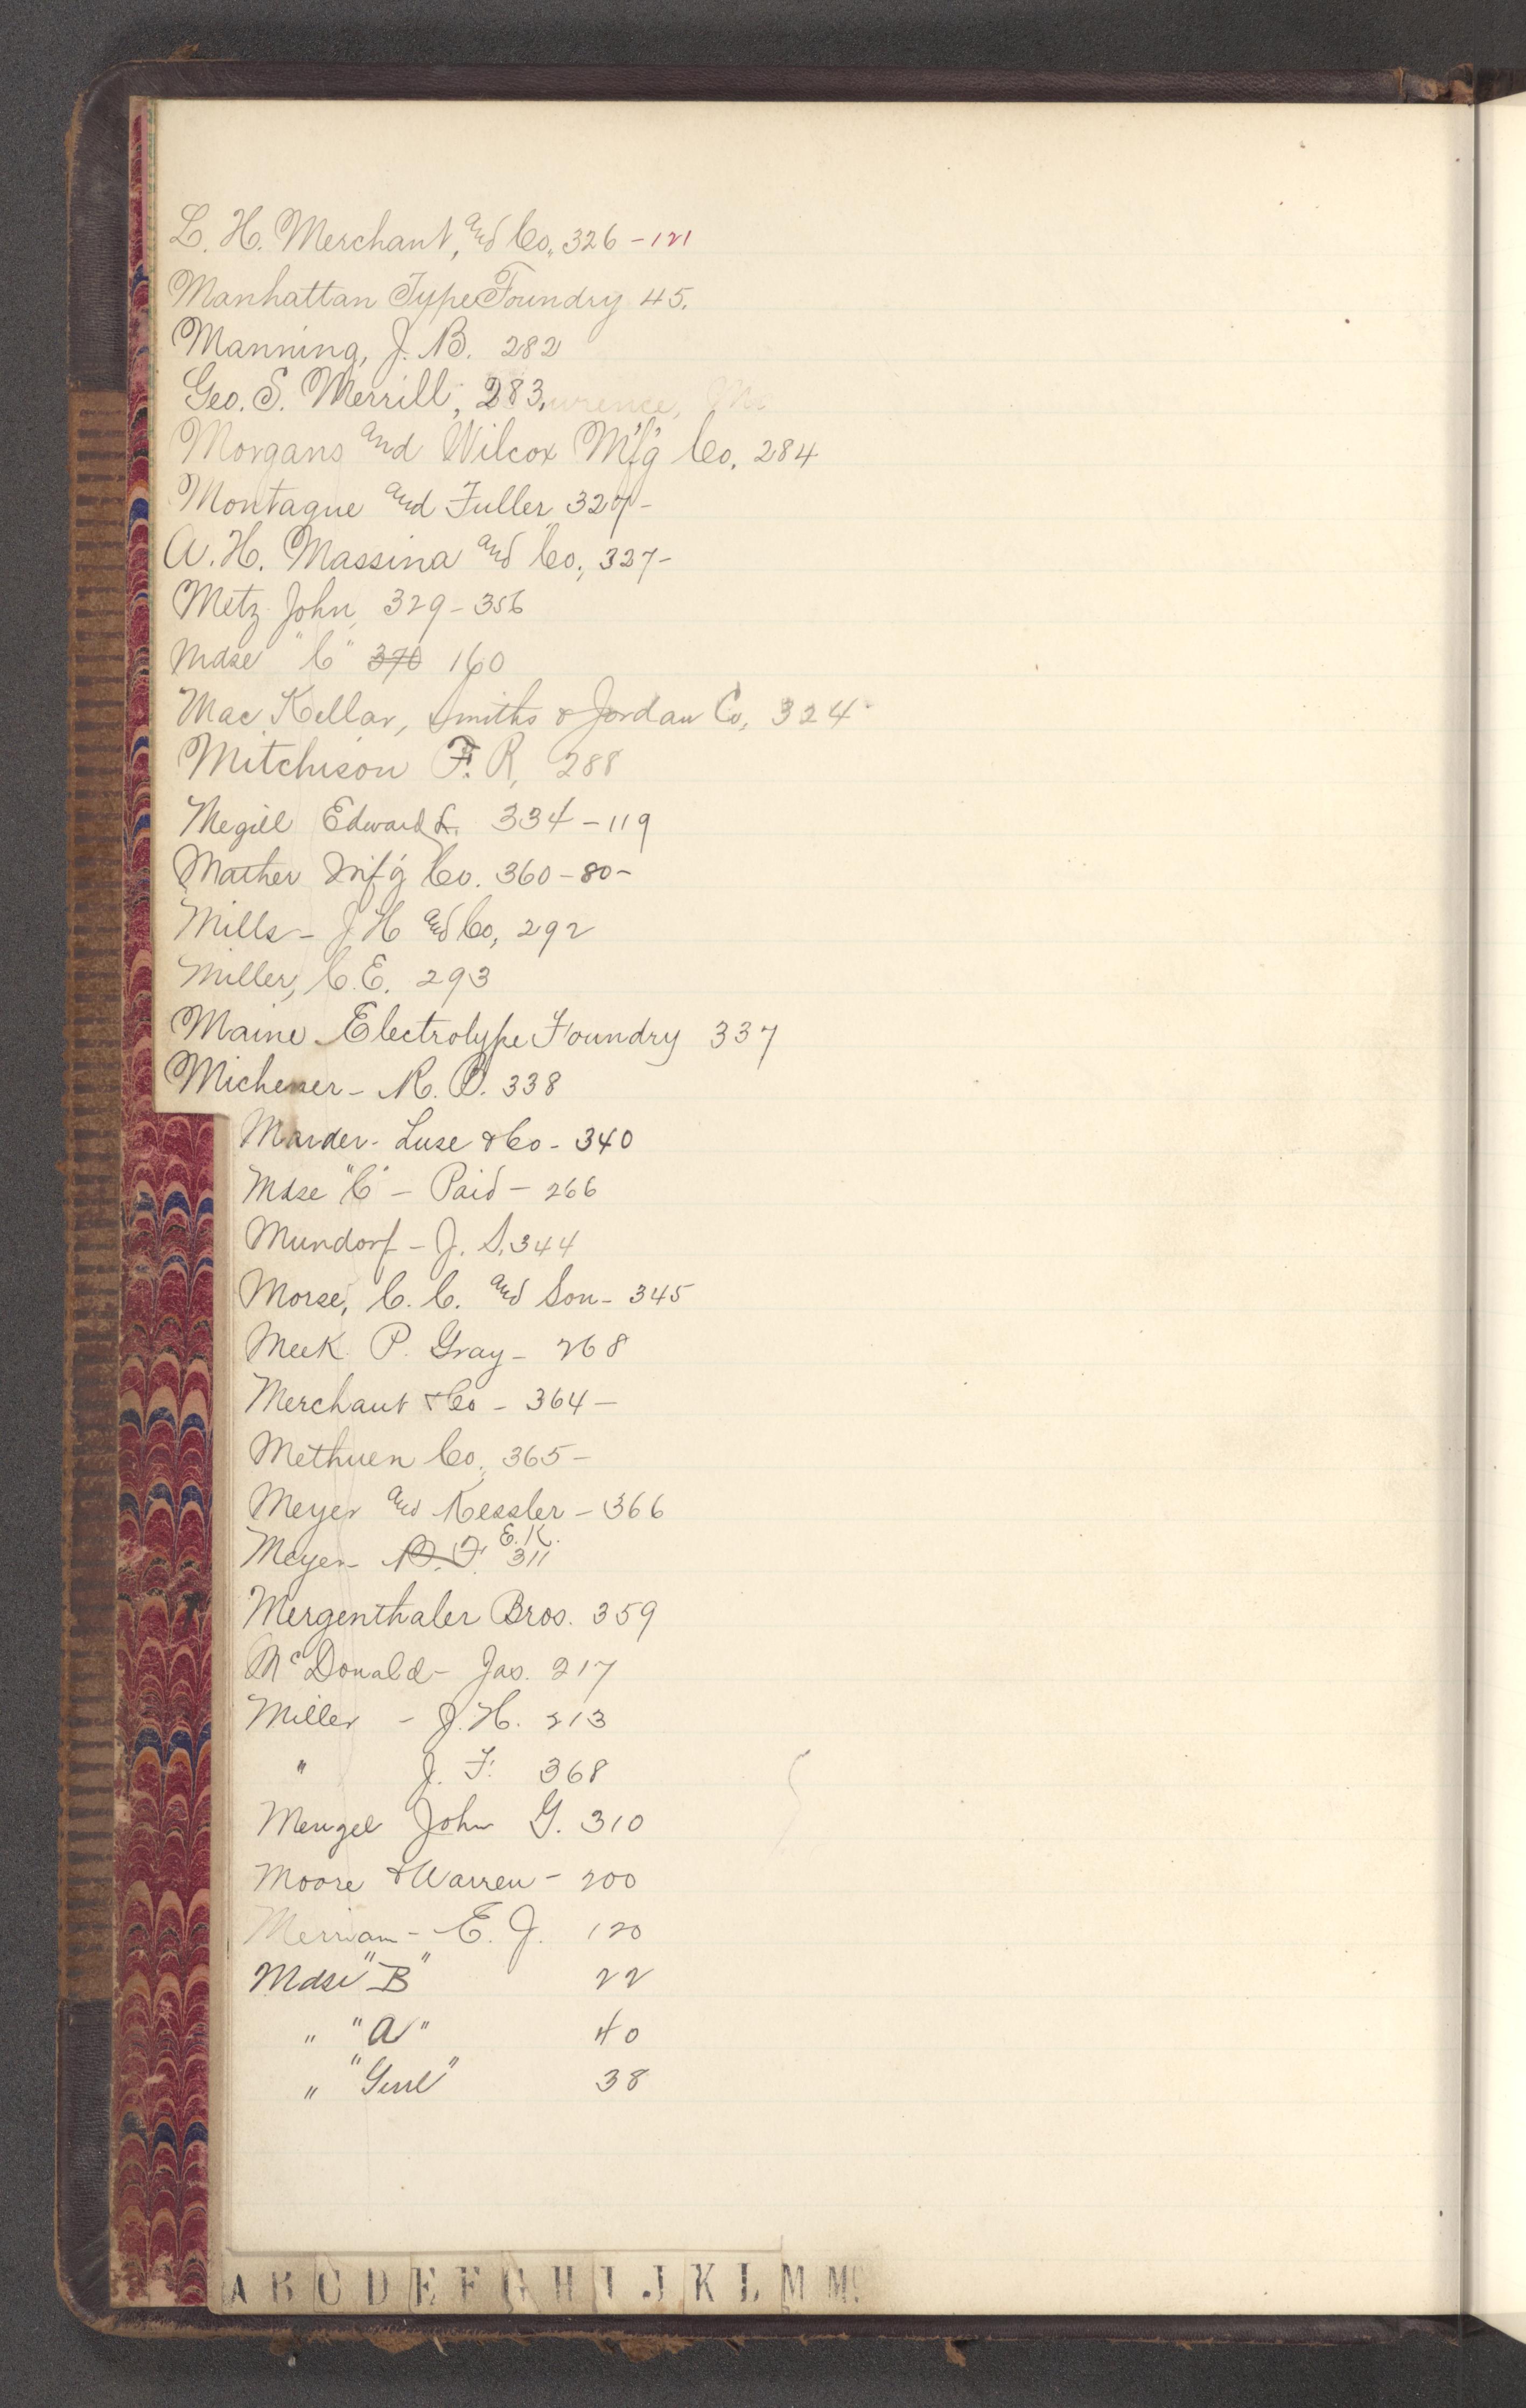 L. H. Merchant, and Co., 326 - 121
Manhattan Type Foundry 45.
Manning, J. B. 282
Geo. S. Merrill, 283,
Morgans and Wilcox M'f'g Co. 284
Montague and Fuller 327 -
A. H. Massina and Co., 327 -
Metz John, 329 - 356
Mdse "C" 370 160
Mac Kellar, Smiths & Jordan Co, 324
Mitchison F. R, 288
Megill Edward L. 334 - 119
Mather Mf'g Co. 360 - 80 -
Mills - J H and Co, 292
Miller, C. E. 293
Maine Electrotype Foundry 337
Michener - R. O. 338
Marder - Luse & Co - 340
Mdse "C" - Paid - 266
Mundorf - J. S. 344
Morse, C. C. and Son - 345
Meek P. Gray - 268
Merchant & Co - 364 -
Methuen Co, 365 -
Meyer and Kessler - 366
Meyer - E. K. 311
Mergenthaler Bros. 359
McDonald - Jas. 217
Miller - J. H. 213
" J. F. 368
Mengel John G. 310
Moore & Warren - 200
Merriam - E. J. 120
Mdse "B" 22
" "A" 40
" "Genl" 38
A B C D E F G H I J K L M Mc